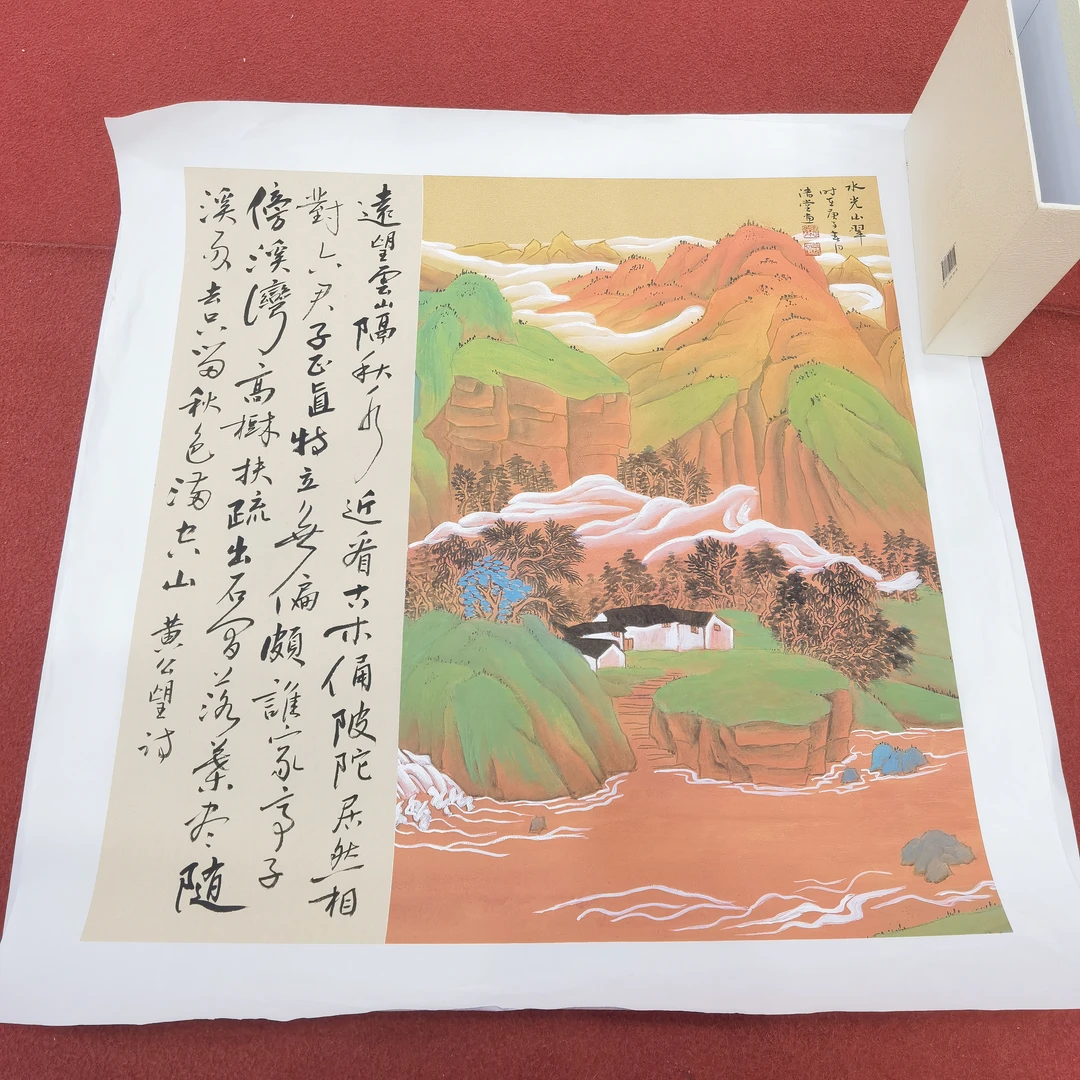 水光山翠
时在庚子春月
遠望雲山隔秋水近看古木俑陂陀居然相
對六君子正直特立無偏頗誰家亭子
傍溪灣高樹扶疏出石間落葉盡隨
溪雨去只留秋色滿空山
黄公望詩